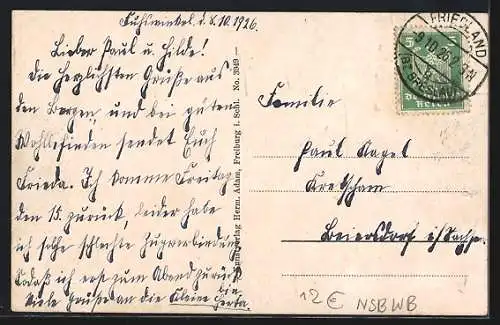 Fuchswinkel d. 8.10.1926.
Lieber Paul u. Hilde!
Die herzlichsten Grüße aus
den Bergen, und bei gutem
Wohlbefinden sendet Euch
Frieda. Ich komme Freitag
den 15. zurück, leider habe
ich solche schlechte Zugverbindung
sodaß ich erst zum Abend zurück
bin
Viele Grüße an die Kleine Herta.
Verlag Herm. Adam, Freiburg i. Schl. No. 3049
FRIEDLAND
9.10.26
BRESLAU
Familie
Paul Nagel
Kretscham
Beiersdorf i/Sachsen
12 € NSB WB